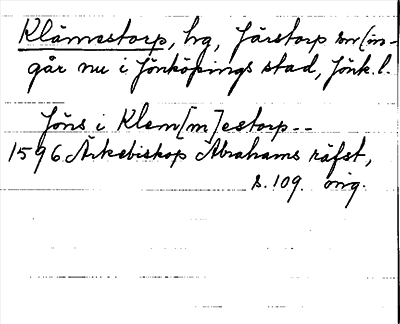 Klämmestorp, hg, Järstorp sn (in-
går nu i Jönköpings stad, Jönk. l.
Jöns i Klem[m]estorp --
1596 Ärkebiskop Abrahams räfst,
s. 109. orig.